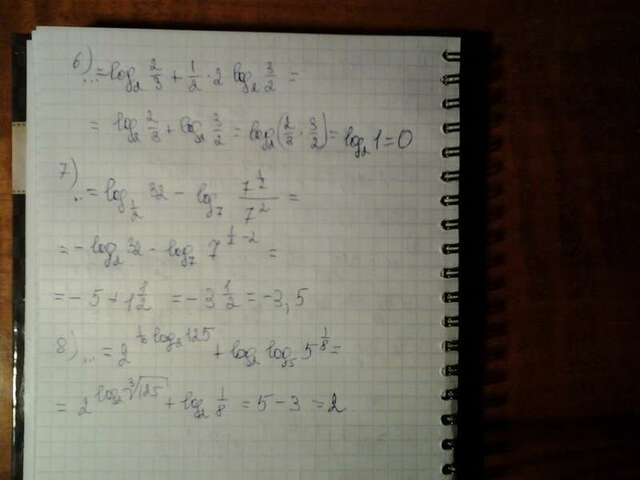 6) ... = log₂ 2/3 + 1/2 · 2 log₂ 3/2 =
= log₂ 2/3 + log₂ 3/2 = log₂(2/3 · 3/2) = log₂ 1 = 0
7) ... = log_{1/2} 32 - log₇ 7^{1/2}/7² =
= - log₂ 32 - log₇ 7^{1/2 - 2} =
= - 5 + 1 1/2 = - 3 1/2 = - 3,5
8) ... = 2^{1/3 log₂ 125} + log₂ log₅ 5^{1/8} =
= 2^{log₂ ∛125} + log₂ 1/8 = 5 - 3 = 2